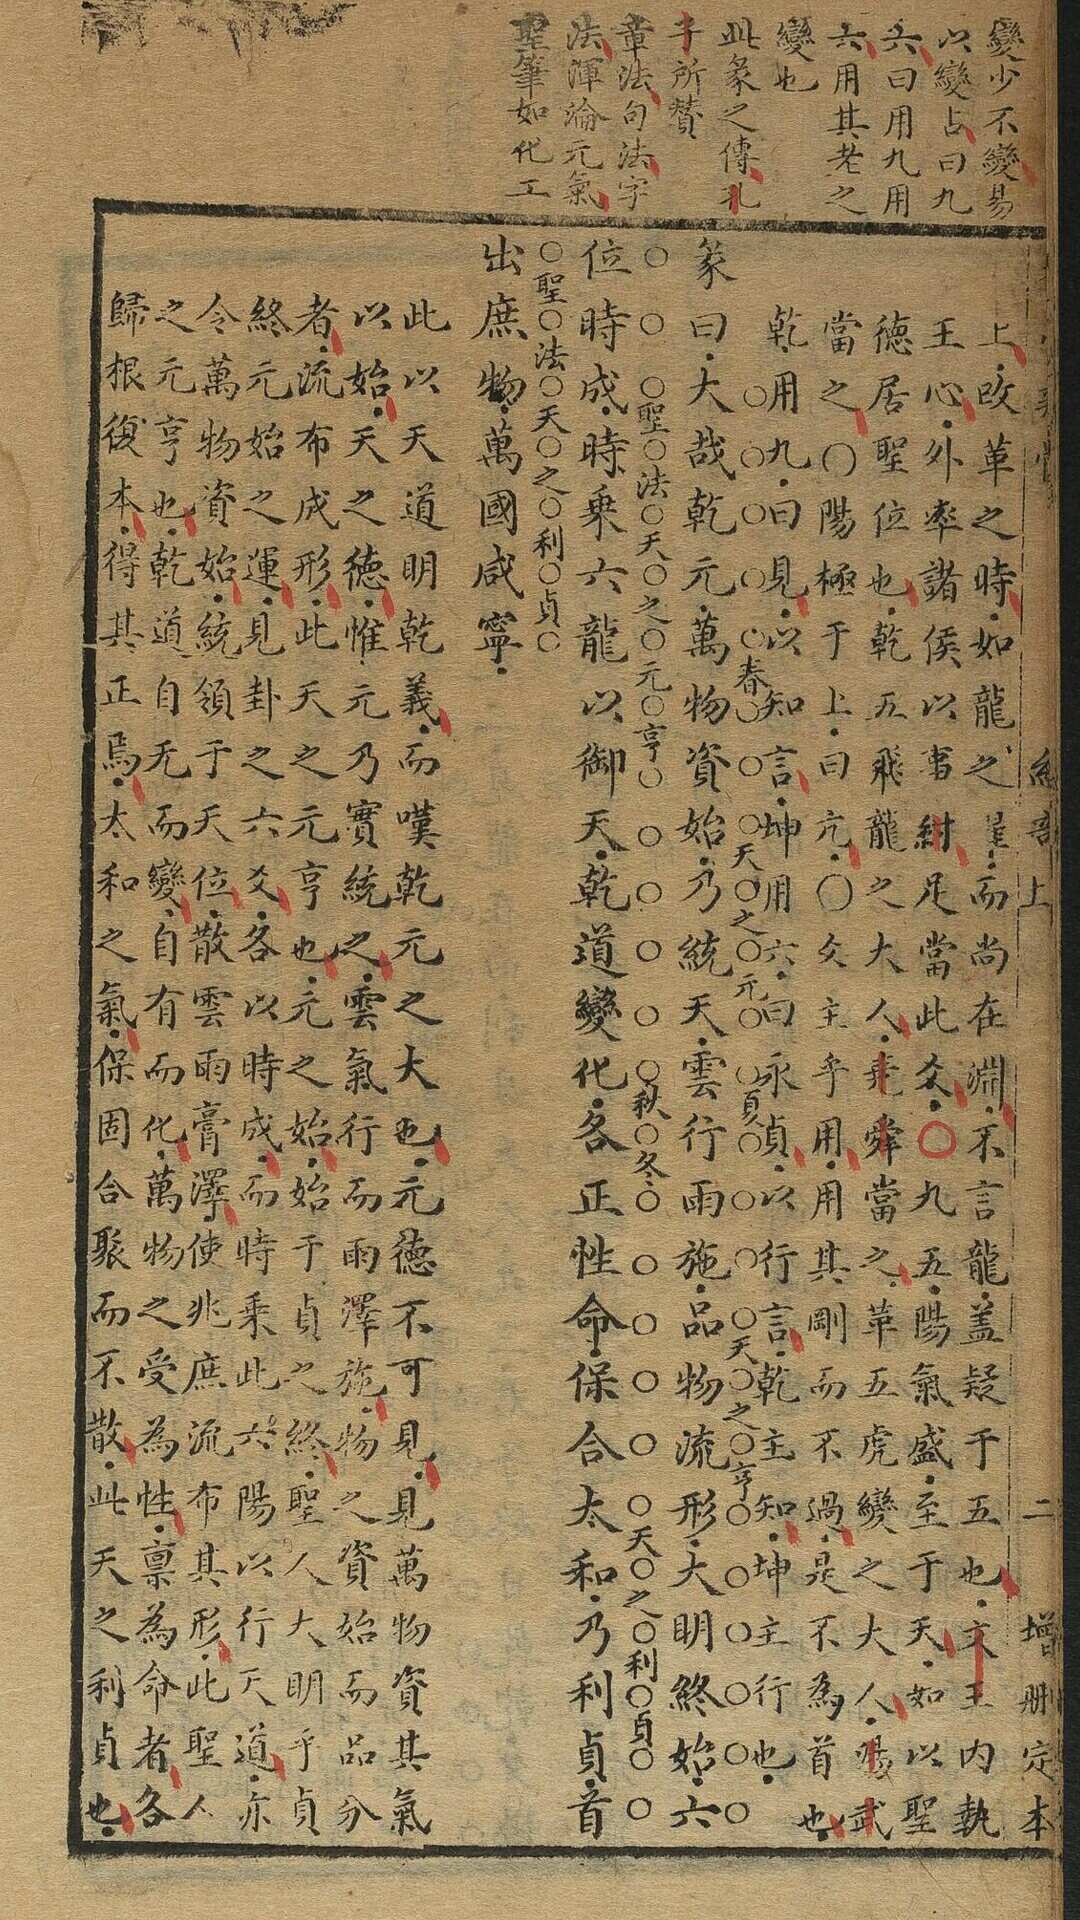 變少不變易
以變占曰九
六曰用九用
六用其老之
變也
此彖之傳孔
子所贊
章法句法字
法渾淪元氣
聖筆如化工
上改革之時如龍之 而尚在淵不言龍蓋疑于五也文王內執
王心外率諸侯以事紂足當此爻〇九五陽氣盛至于天如以聖
德居聖位也乾五飛龍之大人堯舜當之革五虎變之大人湯武
當之〇陽極于上曰亢〇爻主乎用用其剛而不過是不為首也
乾用九曰見以知言坤用六曰永貞以行言乾主知坤主行也
春 天之元 夏 天之亨
彖曰大哉乾元萬物資始乃統天雲行雨施品物流形大明終始六
聖法天之元亨 秋冬 天之利貞
位時成時乘六龍以御天乾道變化各正性命保合太和乃利貞首
聖法天之利貞
出庶物萬國咸寧
此以天道明乾義而嘆乾元之大也元德不可見見萬物資其氣
以始天之德惟元乃實統之雲氣行而雨澤施物之資始而品分
者流布成形此天之元亨也元之始始于貞之終聖人大明乎貞
終元始之運見卦之六爻各以時成而時乘此六陽以行天道亦
令萬物資始統領于天位散雲雨膏澤使兆庶流布其形此聖人
之元亨也乾道自无而變自有而化萬物之受為性禀為命者各
歸根復本得其正焉太和之氣保固合聚而不散此天之利貞也
上 二 增刪定本